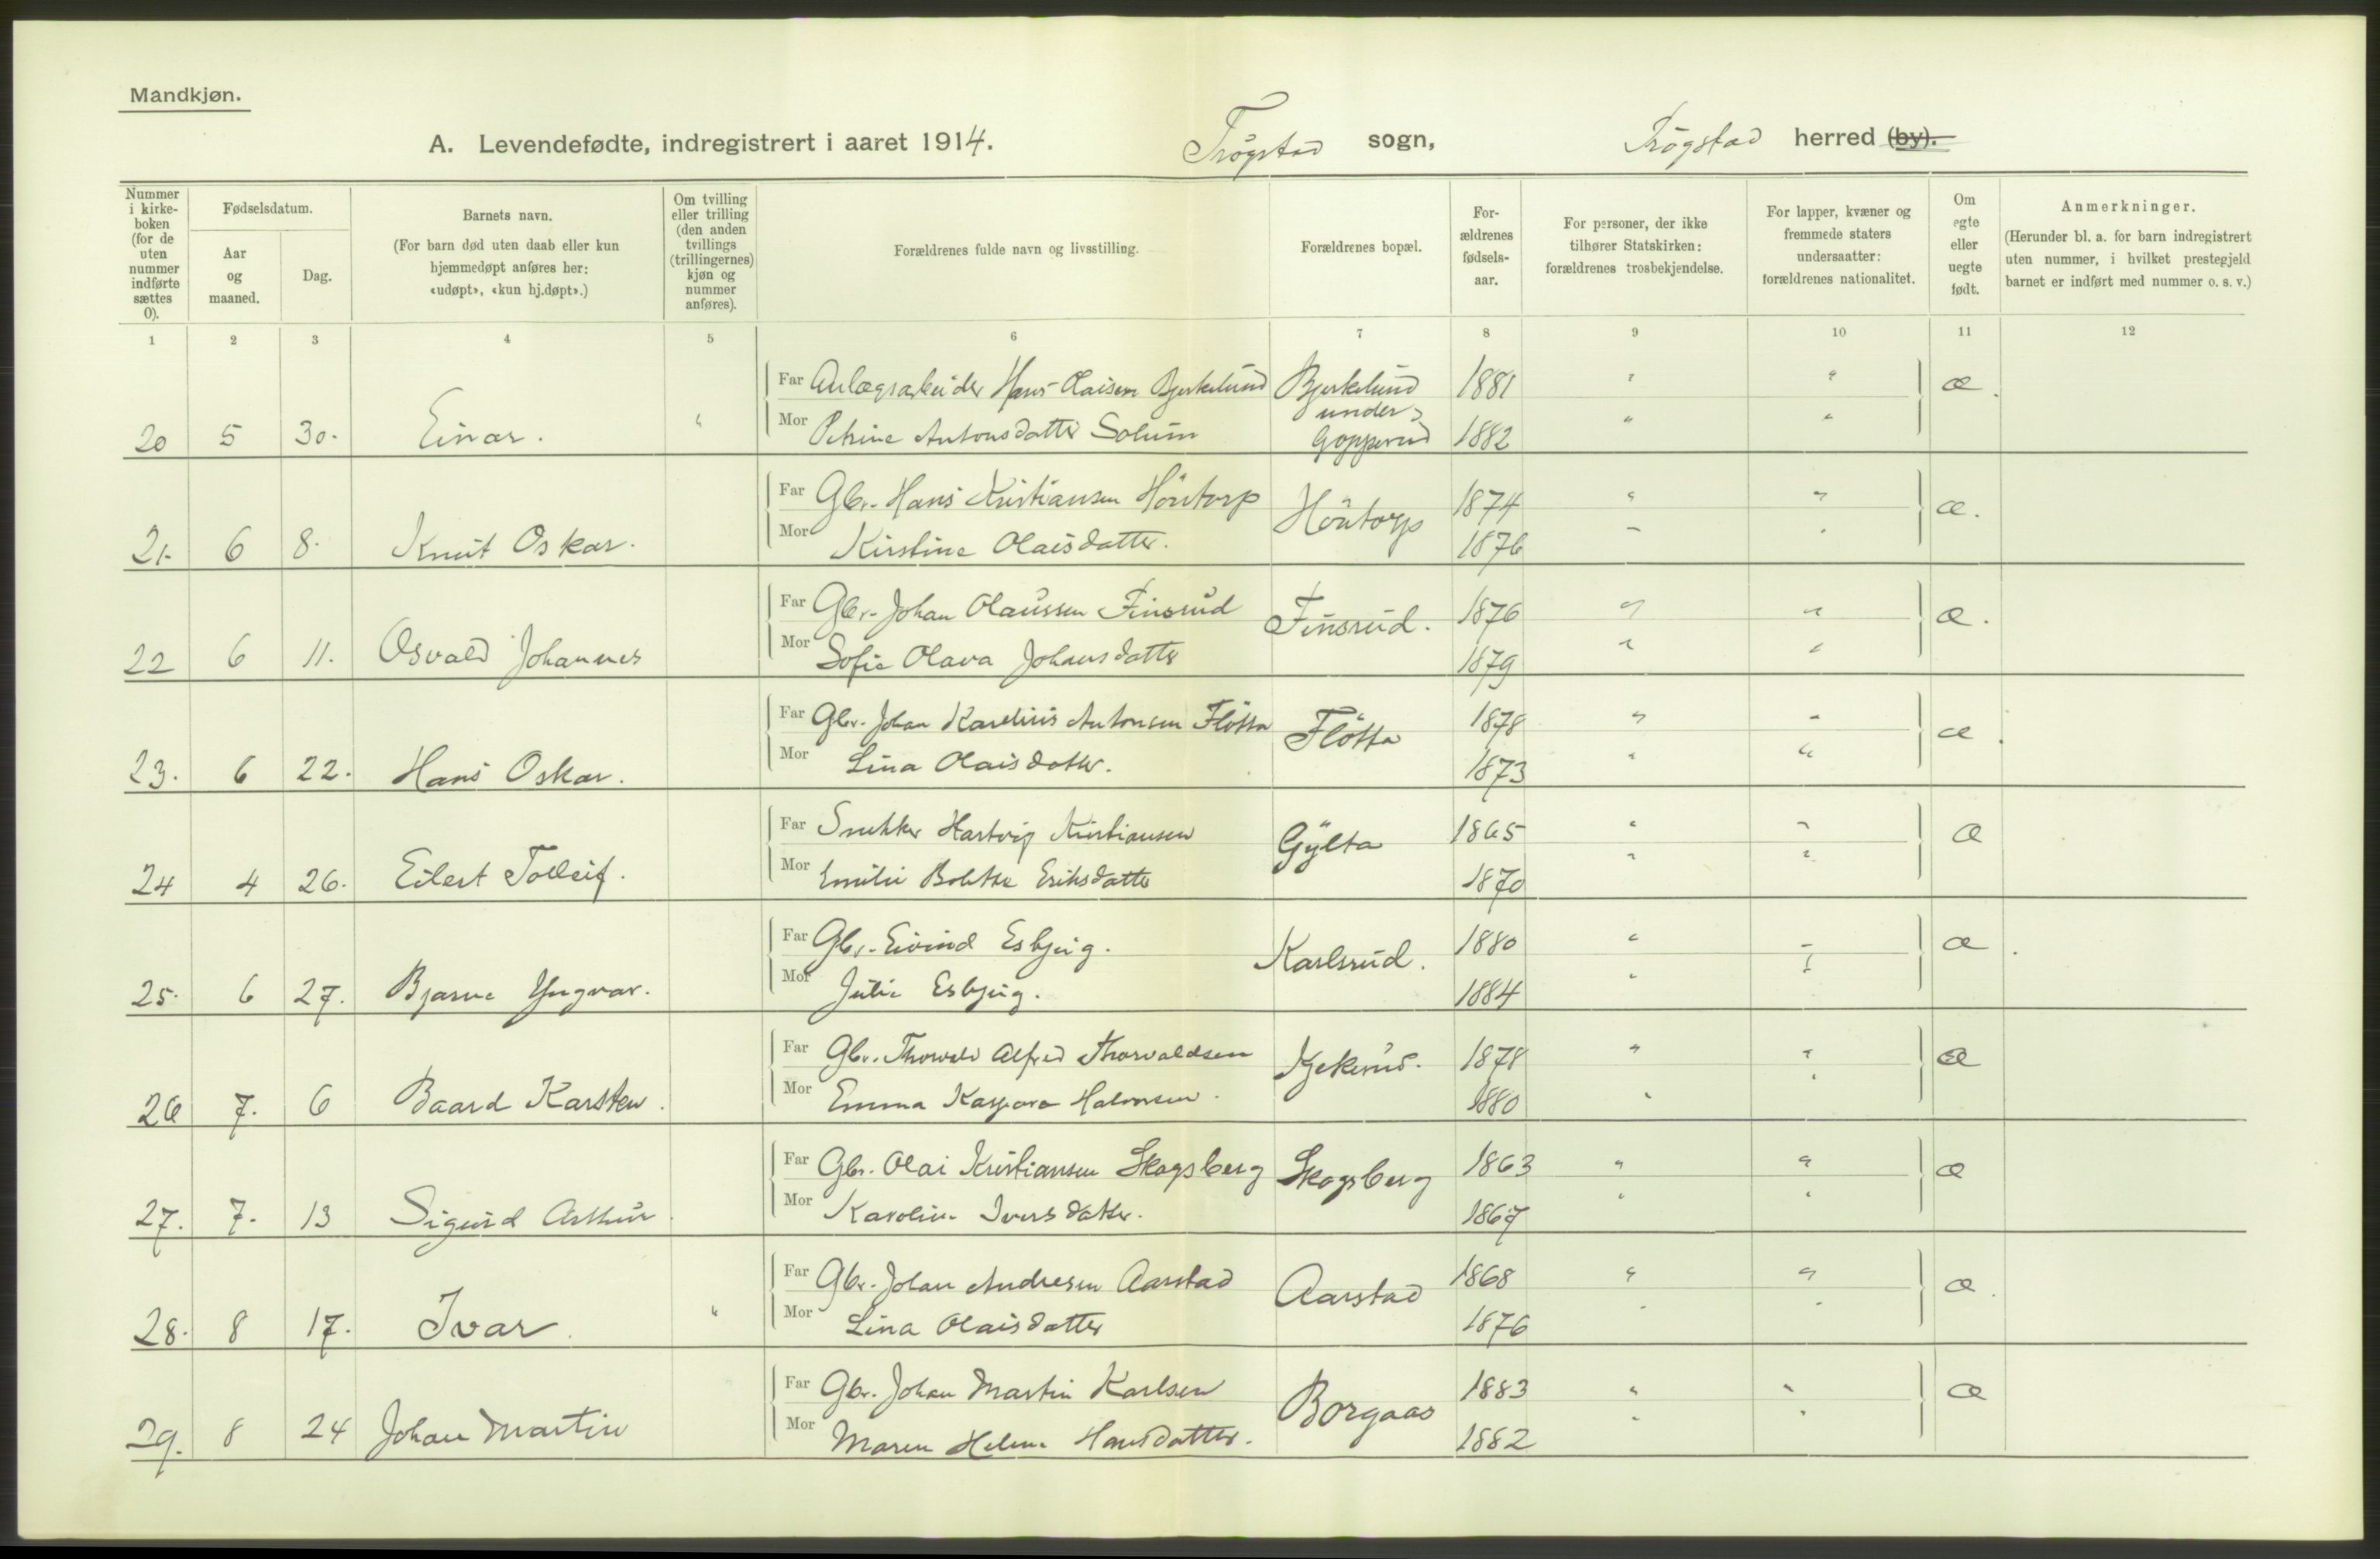 Mandkjøn.
A. Levendefødte, indregistrert i aaret 1914. Trøgstad sogn, Trøgstad herred (by).
Nummer i kirke-boken (for de uten nummer indførte sættes 0).
Fødselsdatum.
Aar og maaned.
Dag.
Barnets navn.
(For barn død uten daab eller kun hjemmedøpt anføres her: «udøpt», «kun hj.døpt».)
Om tvilling eller trilling (den anden tvillings (trillingernes) kjøn og nummer anføres).
Forældrenes fulde navn og livsstilling.
Forældrenes bopæl.
For-ældrenes fødsels-aar.
For personer, der ikke tilhører Statskirken: forældrenes trosbekjendelse.
For lapper, kvæner og fremmede staters undersaatter: forældrenes nationalitet.
Om egte eller uegte født.
Anmerkninger.
(Herunder bl. a. for barn indregistrert uten nummer, i hvilket prestegjeld barnet er indført med nummer o. s. v.)
1 2 3 4 5 6 7 8 9 10 11 12
Far Anlægsarbeider Hans Olaisen Bjerkelund Bjerkelund 1881 " " æ.
under
20 5 30. Einar. " Mor Petrine Antonsdatter Solum Gopperud 1882 " "
Far Gbr. Hans Kristiansen Höntorp Höntorp 1874 " " æ.
21. 6 8. Knut Oskar. Mor Kirstine Olaisdatter. 1876 " "
Far Gbr. Johan Olaussen Finsrud Finsrud. 1876 " " æ.
22 6 11. Osvald Johannes Mor Sofie Olava Johansdatter 1879 " "
Far Gbr. Johan Karelius Antonsen Flötta Flötta 1878 " " æ.
23. 6 22. Hans Oskar. Mor Lina Olaisdatter. 1873 " "
Far Snekker Hartvig Kristiansen Gylta 1865 " " æ
24 4 26. Eilert Tolleif. Mor Emilie Bolette Eriksdatter 1870 " "
Far Gbr. Eivind Esbjug. Karlsrud. 1880 " " æ.
25. 6 27. Bjarne Yngvar. Mor Julie Esbjug. 1884 " "
Far Gbr. Thorvald Alfred Thorvaldsen Kjekerud. 1878 " " æ
26 7. 6 Baard Karsten. Mor Emma Kaspara Halvorsen. 1880 " "
Far Gbr. Olai Kristiansen Skogsberg Skogsberg 1863 " " æ
27. 7. 13 Sigurd Arthur. Mor Karoline Iversdatter. 1867 " "
Far Gbr. Johan Andresen Aarstad Aarstad 1868 " " æ.
28. 8 17. Ivar. " Mor Lina Olaisdatter 1876 " "
Far Gbr. Johan Martin Karlsen Borgaas 1883 " " æ
29. 8 24 Johan Martin Mor Maren Helene Hansdatter. 1882 " "